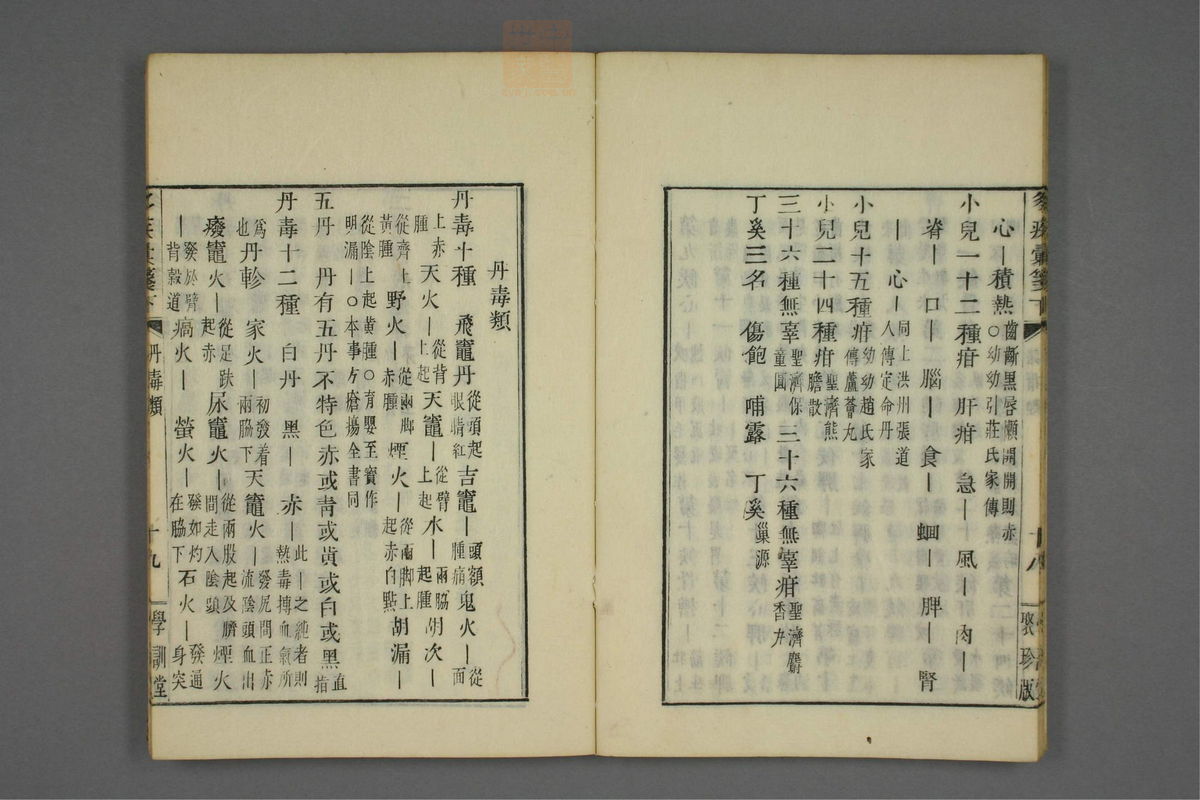 心｜積熱 齒齗黑唇懶開開則赤
○幼幼引莊氏家傳
小兒一十二種疳 肝疳 急｜ 風｜ 肉｜
脊｜ 口｜ 腦｜ 食｜ 蛔｜ 脾｜ 腎
｜ 心｜ 同上洪州張道
人傳定命丹
小兒十五種疳 幼幼趙氏家
傳蘆薈丸
小兒二十四種疳 聖濟熊
膽散
三十六種無辜 聖濟保
童圓 三十六種無辜疳 聖濟麝
香丸
丁奚三名 傷飽 哺露 丁奚 巢源
十八
聚珍版
丹毒類
丹毒十種 飛竈丹 從頭起
眼睛紅 吉竈｜ 頭額
腫痛 鬼火｜ 從
面
上赤
腫 天火｜ 從背
上起 天竈｜ 從臂
上起 水｜ 兩脇
起腫 胡次｜
從齊上
黃腫 野火｜ 從兩脚
赤腫 煙火｜ 從兩脚上
起赤白點 胡漏｜
從陰上起黃腫○育嬰至寶作
明漏｜○本事方瘡瘍全書同
五丹 丹有五丹不特色赤或青或黃或白或黑 直
指
丹毒十二種 白丹 黑｜ 赤｜ 此｜之純者則
熱毒搏血氣所
爲
也 丹軫 家火｜ 初發着
兩脇下 天竈火｜ 發尻間正赤
流陰頭血出
癈竈火｜ 從足趺
起赤 尿竈火｜ 從兩股起及臍
間走入陰頭 煙火
｜ 發於臂
背穀道 癌火｜ 螢火｜ 發如灼
在脇下 石火｜ 發通
身突
丹毒類
十九
學訓堂